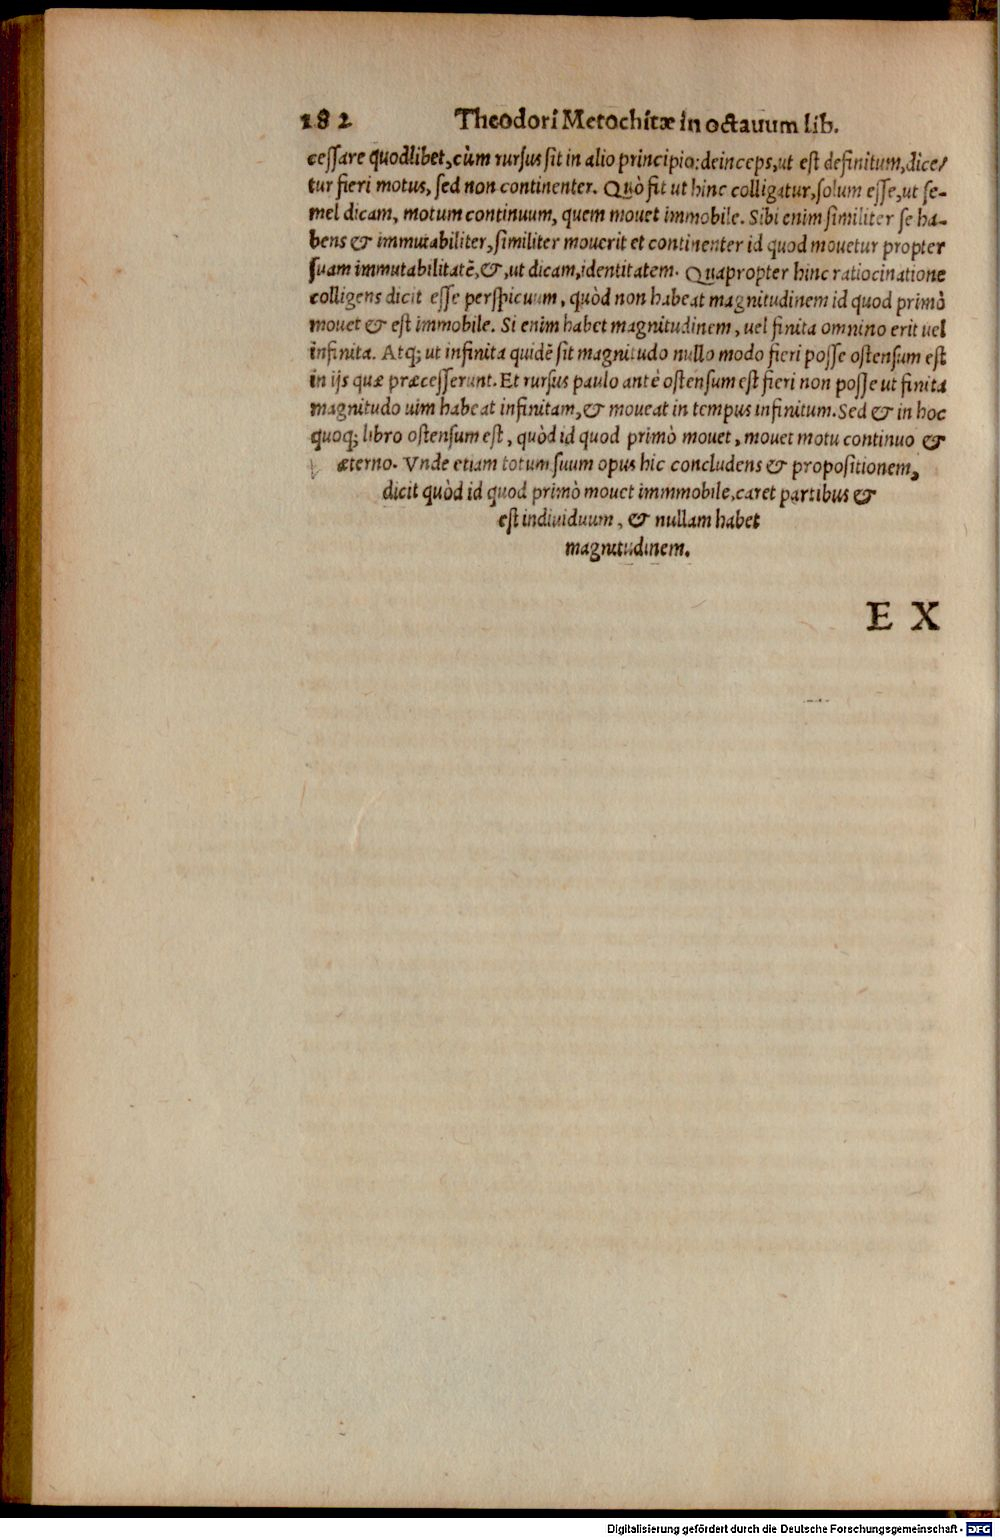 182 Theodori Metochitæ in octauum lib.
ceſſare quodlibet, cùm rurſus ſit in alio principio: deinceps, ut eſt definitum, dice/
tur fieri motus, ſed non continenter. Quò fit ut hinc colligatur, ſolum eſſe, ut ſe-
mel dicam, motum continuum, quem mouet immobile. Sibi enim ſimiliter ſe ha-
bens & immutabiliter, ſimiliter mouerit et continenter id quod mouetur propter
ſuam immutabilitatē, &, ut dicam, identitatem. Quapropter hinc ratiocinatione
colligens dicit eſſe perſpicuum, quòd non habeat magnitudinem id quod primò
mouet & eſt immobile. Si enim habet magnitudinem, uel finita omnino erit uel
infinita. Atq; ut infinita quidē ſit magnitudo nullo modo fieri poſſe oſtenſum eſt
in ijs quæ præceſſerunt. Et rurſus paulo antè oſtenſum eſt fieri non poſſe ut finita
magnitudo uim habeat infinitam, & moueat in tempus infinitum. Sed & in hoc
quoq; libro oſtenſum eſt, quòd id quod primò mouet, mouet motu continuo &
æterno. Vnde etiam totum ſuum opus hic concludens & propoſitionem,
dicit quòd id quod primò mouet immmobile, caret partibus &
eſt indiuiduum, & nullam habet
magnitudinem.
E X
Digitalisierung gefördert durch die Deutsche Forschungsgemeinschaft - DFG